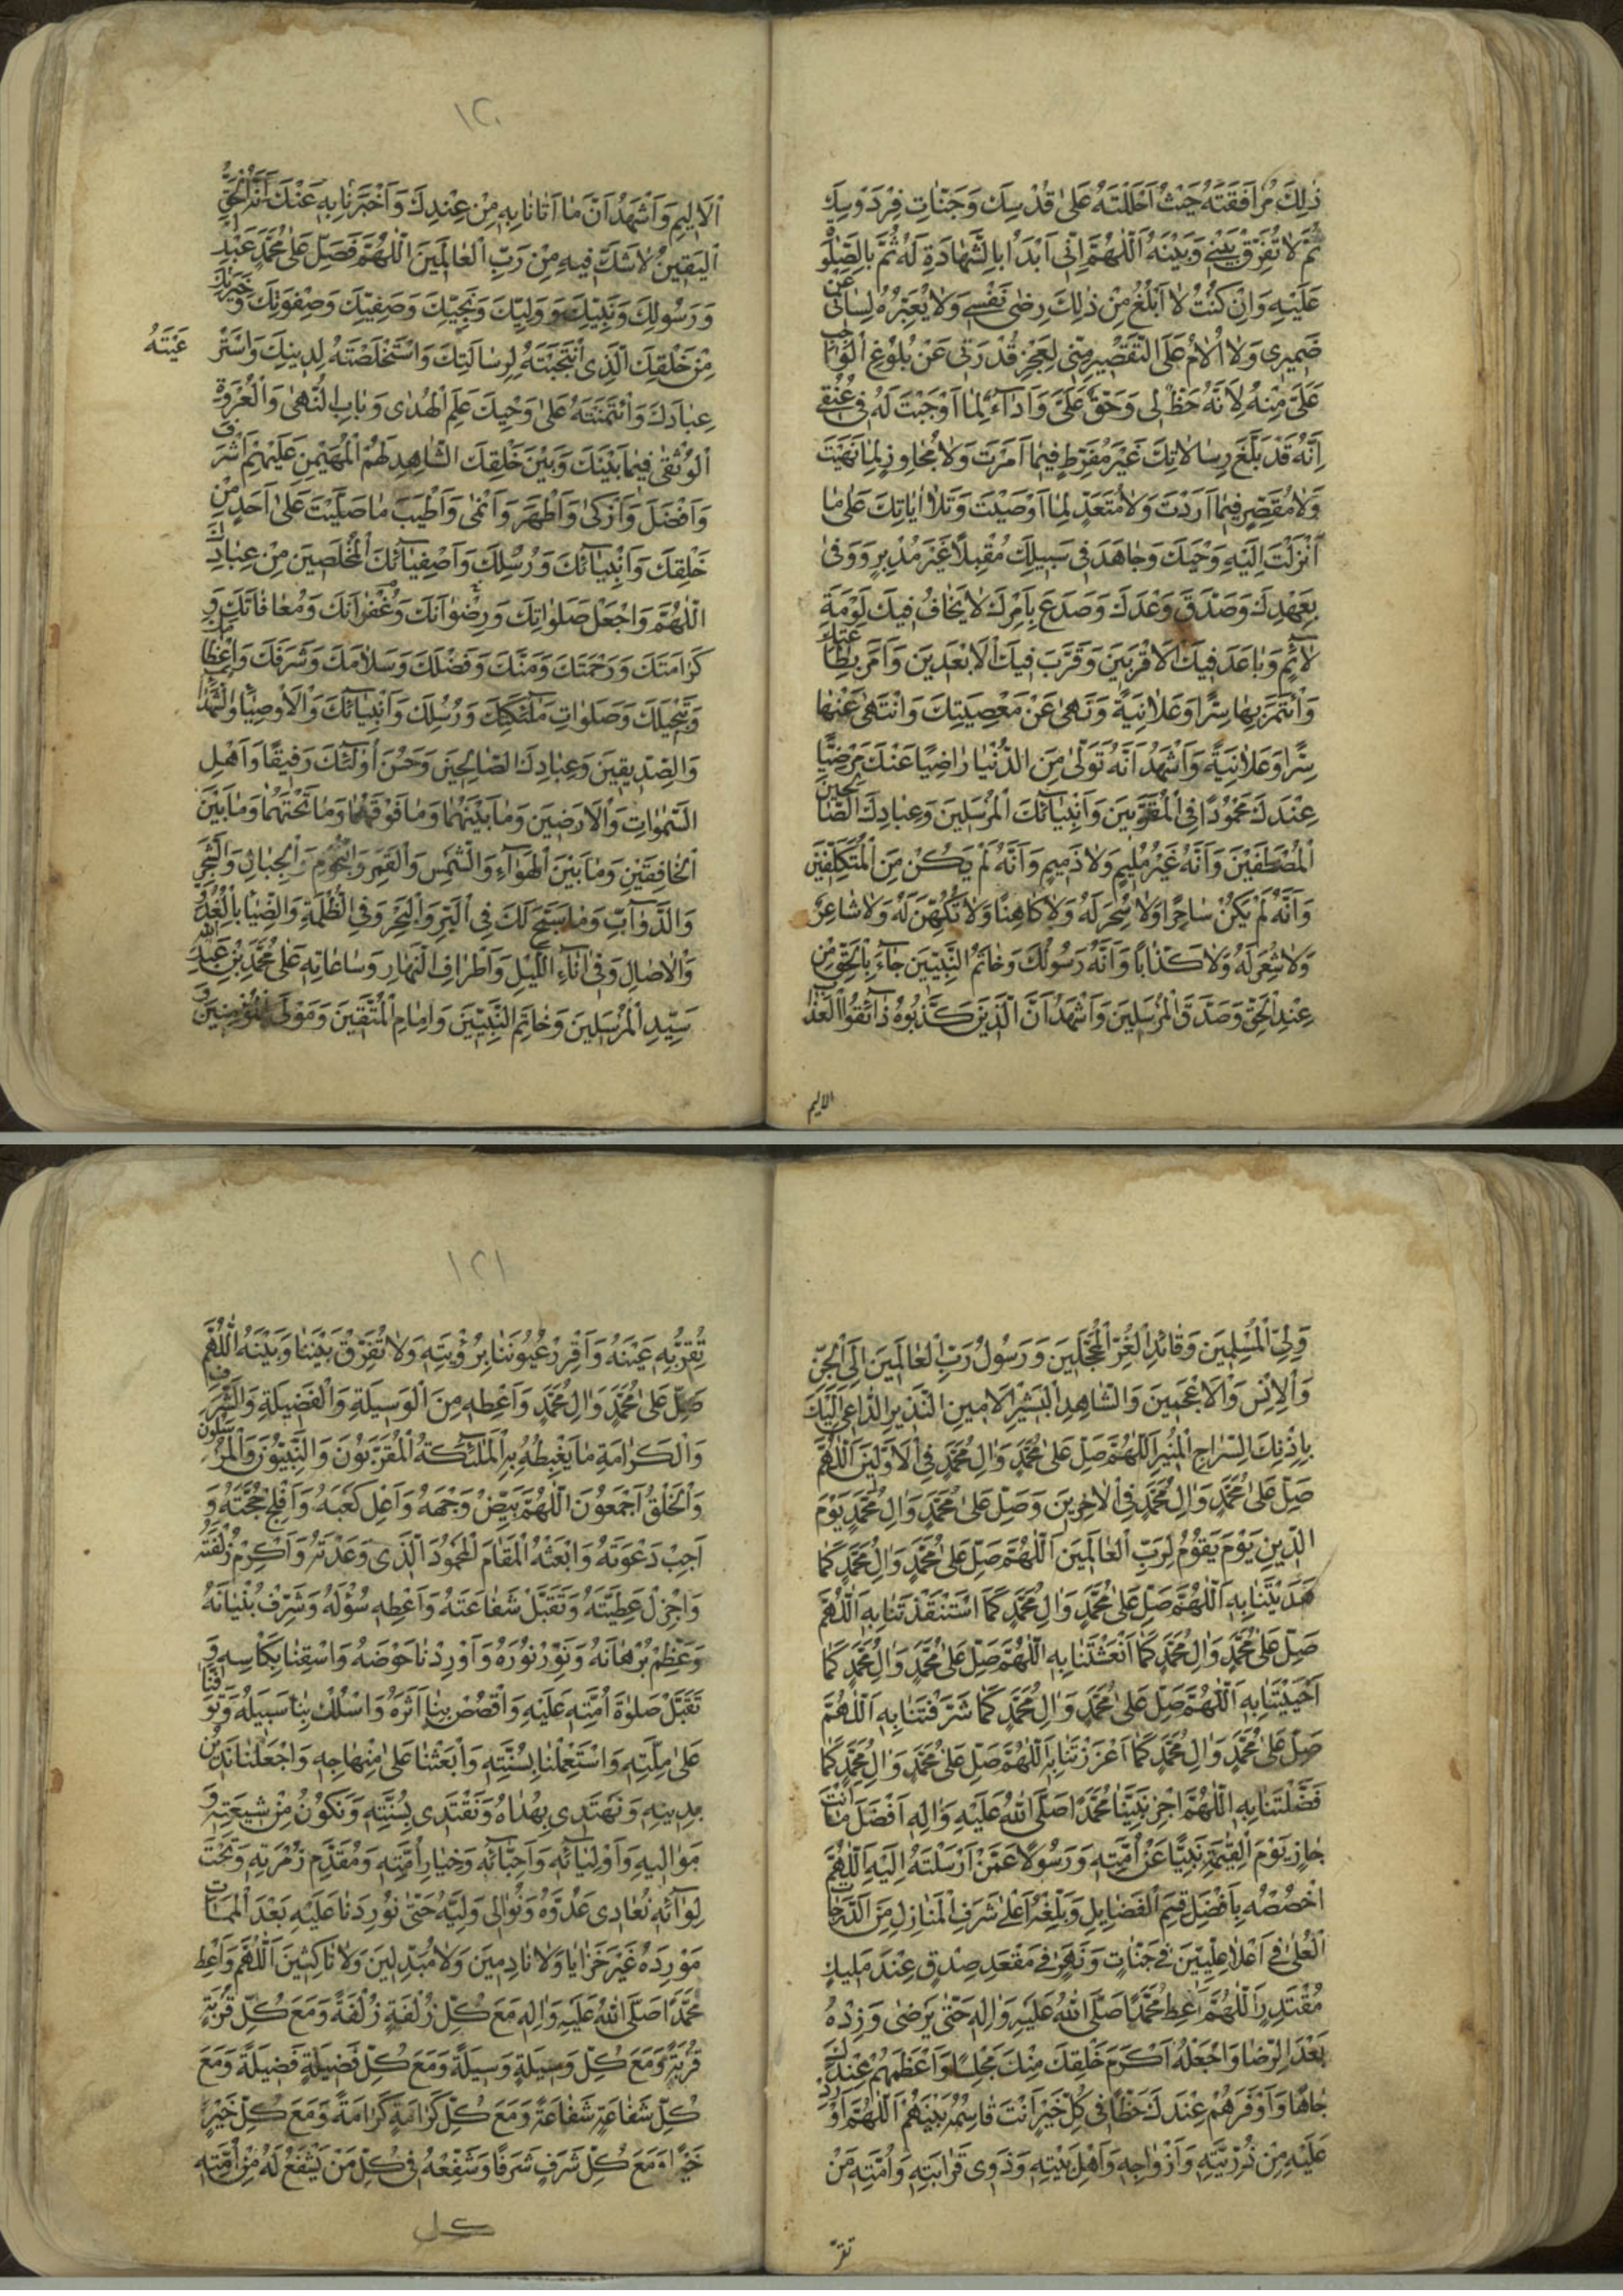 ذٰلِكَ مُرَافَقَتَهُ حَيْثُ اَحْلَلْتَهُ عَلىٰ قُدْسِكَ وَجَنّاتِ فِرْدَوْسِكَ
ثُمَّ لاٰ تُفَرِّقْ بَيْنِي وَبَيْنَهُ اَللّٰهُمَّ اِنّى اَبْدَاُ بِالشَّهٰادَةِ لَهُ ثُمَّ بِالصَّلٰوةِ
عَلَيْهِ وَاِنْ كُنْتُ لاٰ اَبْلُغُ مِنْ ذٰلِكَ رِضٰى نَفْسِي وَلاٰ يُعَبِّرُهُ لِسٰانى عَنْ
ضَمِيرى وَلاٰ اُلاٰمُ عَلَى التَّقْصِيرِ مِنّى لِعَجْزِ قُدْرَتى عَنْ بُلُوغِ الْوٰاجِبِ
عَلَىَّ مِنْهُ لِاَنَّهُ حَظٌّ لى وَحَقٌّ عَلَىَّ وَاَدٰاءٌ لِمٰا اَوْجَبْتَ لَهُ فى عُنُقى
اِنَّهُ قَدْ بَلَّغَ رِسٰالاٰتِكَ غَيْرَ مُفَرِّطٍ فيمٰا اَمَرْتَ وَلاٰ مُجٰاوِزٍ لِمٰا نَهَيْتَ
وَلاٰ مُقَصِّرٍ فيمٰا اَرَدْتَ وَلاٰ مُتَعَدٍّ لِمٰا اَوْصَيْتَ وَتَلاٰ اٰيٰاتِكَ عَلىٰ مٰا
اَنْزَلْتَ اِلَيْهِ وَحْيَكَ وَجٰاهَدَ فى سَبيلِكَ مُقْبِلاً غَيْرَ مُدْبِرٍ وَوَفىٰ
بِعَهْدِكَ وَصَدَّقَ وَعْدَكَ وَصَدَعَ بِاَمْرِكَ لاٰ يَخٰافُ فيكَ لَوْمَةَ
لاٰئِمٍ وَبٰاعَدَ فيكَ الْاَقْرَبينَ وَقَرَّبَ فيكَ الْاَبْعَدينَ وَاَمَرَ بِطٰاعَتِكَ
وَائْتَمَرَ بِهٰا سِرًّا وَعَلاٰنِيَةً وَنَهىٰ عَنْ مَعْصِيَتِكَ وَانْتَهىٰ عَنْهٰا
سِرًّا وَعَلاٰنِيَةً وَاَشْهَدُ اَنَّهُ تَوَلّىٰ مِنَ الدُّنْيٰا رٰاضِيًا عَنْكَ مَرْضِيًّا
عِنْدَكَ مَحْمُودًا فِى الْمُقَرَّبينَ وَاَنْبِيٰائِكَ الْمُرْسَلينَ وَعِبٰادِكَ الصّٰالِحينَ
الْمُصْطَفَيْنَ وَاَنَّهُ غَيْرُ مُليمٍ وَلاٰ ذَميمٍ وَاَنَّهُ لَمْ يَكُنْ مِنَ الْمُتَكَلِّفينَ
وَاَنَّهُ لَمْ يَكُنْ سٰاحِرًا وَلاٰ سُحِرَ لَهُ وَلاٰ كٰاهِنًا وَلاٰ تُكُهِّنَ لَهُ وَلاٰ شٰاعِرًا
وَلاٰ شُعِرَ لَهُ وَلاٰ كَذّٰابًا وَاَنَّهُ رَسُولُكَ وَخٰاتَمُ النَّبِيّينَ جٰاءَ بِالْحَقِّ مِنْ
عِنْدِ الْحَقِّ وَصَدَّقَ الْمُرْسَلينَ وَاَشْهَدُ اَنَّ الَّذينَ كَذَّبُوهُ ذٰائِقُوا الْعَذٰابِ
الاليم
١٢٠
الْاَليمِ وَاَشْهَدُ اَنَّ مٰا اَتٰانٰا بِهِ مِنْ عِنْدِكَ وَاَخْبَرَنٰا بِهِ عَنْكَ اَنَّهُ الْحَقُّ
الْيَقينُ لاٰ شَكَّ فيهِ مِنْ رَبِّ الْعٰالَمينَ اَللّٰهُمَّ فَصَلِّ عَلىٰ مُحَمَّدٍ عَبْدِكَ
وَرَسُولِكَ وَنَبِيِّكَ وَوَلِيِّكَ وَنَجِيِّكَ وَصَفِيِّكَ وَصِفْوَتِكَ وَخِيَرَتِكَ
مِنْ خَلْقِكَ الَّذِى انْتَجَبْتَهُ لِرِسٰالَتِكَ وَاسْتَخْلَصْتَهُ لِدينِكَ وَاسْتَرْعَيْتَهُ
عِبٰادَكَ وَائْتَمَنْتَهُ عَلىٰ وَحْيِكَ عَلَمِ الْهُدىٰ وَبٰابِ النُّهىٰ وَالْعُرْوَةِ
الْوُثْقىٰ فيمٰا بَيْنَكَ وَبَيْنَ خَلْقِكَ الشّٰاهِدِ لَهُمْ الْمُهَيْمِنِ عَلَيْهِمْ اَشْرَفَ
وَاَفْضَلَ وَاَزْكىٰ وَاَطْهَرَ وَاَنْمىٰ وَاَطْيَبَ مٰا صَلَّيْتَ عَلىٰ اَحَدٍ مِنْ
خَلْقِكَ وَاَنْبِيٰائِكَ وَرُسُلِكَ وَاَصْفِيٰائِكَ الْمُخْلَصينَ مِنْ عِبٰادِكَ
اَللّٰهُمَّ وَاجْعَلْ صَلَوٰاتِكَ وَرِضْوٰانَكَ وَغُفْرٰانَكَ وَمُعٰافٰاتَكَ وَ
كَرٰامَتَكَ وَرَحْمَتَكَ وَمَنَّكَ وَفَضْلَكَ وَسَلاٰمَكَ وَشَرَفَكَ وَاِعْظٰامَكَ
وَتَبْجيلَكَ وَصَلَوٰاتِ مَلٰئِكَتِكَ وَرُسُلِكَ وَاَنْبِيٰائِكَ وَالْاَوْصِيٰاءِ وَالشُّهَدٰاءِ
وَالصِّدّيقينَ وَعِبٰادِكَ الصّٰالِحينَ وَحَسُنَ اُولٰئِكَ رَفيقًا وَاَهْلِ
السَّمٰوٰاتِ وَالْاَرَضينَ وَمٰا بَيْنَهُمٰا وَمٰا فَوْقَهُمٰا وَمٰا تَحْتَهُمٰا وَمٰا بَيْنَ
الْخٰافِقَيْنِ وَمٰا بَيْنَ الْهَوٰاءِ وَالشَّمْسِ وَالْقَمَرِ وَالنُّجُومِ وَالْجِبٰالِ وَالشَّجَرِ
وَالدَّوٰابِّ وَمٰا سَبَّحَ لَكَ فِى الْبَرِّ وَالْبَحْرِ وَفِى الظُّلْمَةِ وَالضِّيٰاءِ بِالْغُدُوِّ
وَالْاٰصٰالِ وَفى اٰنٰاءِ اللَّيْلِ وَاَطْرٰافِ النَّهٰارِ وَسٰاعٰاتِهِ عَلىٰ مُحَمَّدِ بْنِ عَبْدِ اللهِ
سَيِّدِ الْمُرْسَلينَ وَخٰاتَمِ النَّبِيّينَ وَاِمٰامِ الْمُتَّقينَ وَمَوْلَى الْمُؤْمِنينَ وَ
وَلِىِّ الْمُسْلِمينَ وَقٰائِدِ الْغُرِّ الْمُحَجَّلينَ وَرَسُولِ رَبِّ الْعٰالَمينَ اِلَى الْجِنِّ
وَالْاِنْسِ وَالْاَعْجَمينَ وَالشّٰاهِدِ الْبَشيرِ الْاَمينِ النَّذيرِ الدّٰاعى اِلَيْكَ
بِاِذْنِكَ السِّرٰاجِ الْمُنيرِ اَللّٰهُمَّ صَلِّ عَلىٰ مُحَمَّدٍ وَاٰلِ مُحَمَّدٍ فِى الْاَوَّلينَ اَللّٰهُمَّ
صَلِّ عَلىٰ مُحَمَّدٍ وَاٰلِ مُحَمَّدٍ فِى الْاٰخِرينَ وَصَلِّ عَلىٰ مُحَمَّدٍ وَاٰلِ مُحَمَّدٍ يَوْمَ
الدّينِ يَوْمَ يَقُومُ لِرَبِّ الْعٰالَمينَ اَللّٰهُمَّ صَلِّ عَلىٰ مُحَمَّدٍ وَاٰلِ مُحَمَّدٍ كَمٰا
هَدَيْتَنٰا بِهِ اَللّٰهُمَّ صَلِّ عَلىٰ مُحَمَّدٍ وَاٰلِ مُحَمَّدٍ كَمَا اسْتَنْقَذْتَنٰا بِهِ اَللّٰهُمَّ
صَلِّ عَلىٰ مُحَمَّدٍ وَاٰلِ مُحَمَّدٍ كَمٰا اَنْعَشْتَنٰا بِهِ اَللّٰهُمَّ صَلِّ عَلىٰ مُحَمَّدٍ وَاٰلِ مُحَمَّدٍ كَمٰا
اَحْيَيْتَنٰا بِهِ اَللّٰهُمَّ صَلِّ عَلىٰ مُحَمَّدٍ وَاٰلِ مُحَمَّدٍ كَمٰا شَرَّفْتَنٰا بِهِ اَللّٰهُمَّ
صَلِّ عَلىٰ مُحَمَّدٍ وَاٰلِ مُحَمَّدٍ كَمٰا اَعْزَزْتَنٰا بِهِ اَللّٰهُمَّ صَلِّ عَلىٰ مُحَمَّدٍ وَاٰلِ مُحَمَّدٍ كَمٰا
فَضَّلْتَنٰا بِهِ اَللّٰهُمَّ اجْزِ نَبِيَّنٰا مُحَمَّدًا صَلَّى اللهُ عَلَيْهِ وَاٰلِهِ اَفْضَلَ مٰا اَنْتَ
جٰازٍ يَوْمَ الْقِيٰمَةِ نَبِيًّا عَنْ اُمَّتِهِ وَرَسُولاً عَمَّنْ اَرْسَلْتَهُ اِلَيْهِ اَللّٰهُمَّ
اخْصُصْهُ بِاَفْضَلِ قِسَمِ الْفَضٰايِلِ وَبَلِّغْهُ اَعْلىٰ شَرَفِ الْمَنٰازِلِ مِنَ الدَّرَجٰاتِ
الْعُلىٰ فى اَعْلاٰ عِلِّيّينَ فى جَنّٰاتٍ وَنَهَرٍ فى مَقْعَدِ صِدْقٍ عِنْدَ مَليكٍ
مُقْتَدِرٍ اَللّٰهُمَّ اَعْطِ مُحَمَّدًا صَلَّى اللهُ عَلَيْهِ وَاٰلِهِ حَتّىٰ يَرْضىٰ وَزِدْهُ
بَعْدَ الرِّضٰا وَاجْعَلْهُ اَكْرَمَ خَلْقِكَ مِنْكَ مَجْلِسًا وَاَعْظَمَهُمْ عِنْدَكَ
جٰاهًا وَاَوْفَرَهُمْ عِنْدَكَ حَظًّا فى كُلِّ خَيْرٍ اَنْتَ قٰاسِمُهُ بَيْنَهُمْ اَللّٰهُمَّ اَوْرِدْ
عَلَيْهِ مِنْ ذُرِّيَّتِهِ وَاَزْوٰاجِهِ وَاَهْلِ بَيْتِهِ وَذَوى قَرٰابَتِهِ وَاُمَّتِهِ مَنْ
تقرّ
١٢١
تُقِرُّ بِهِ عَيْنَهُ وَاَقْرِرْ عُيُونَنٰا بِرُؤْيَتِهِ وَلاٰ تُفَرِّقْ بَيْنَنٰا وَبَيْنَهُ اَللّٰهُمَّ
صَلِّ عَلىٰ مُحَمَّدٍ وَاٰلِ مُحَمَّدٍ وَاَعْطِهِ مِنَ الْوَسيلَةِ وَالْفَضيلَةِ وَالشَّرَفِ
وَالْكَرٰامَةِ مٰا يَغْبِطُهُ بِهِ الْمَلٰئِكَةُ الْمُقَرَّبُونَ وَالنَّبِيُّونَ وَالْمُرْسَلُونَ
وَالْخَلْقُ اَجْمَعُونَ اَللّٰهُمَّ بَيِّضْ وَجْهَهُ وَاَعْلِ كَعْبَهُ وَاَفْلِجْ حُجَّتَهُ وَ
اَجِبْ دَعْوَتَهُ وَابْعَثْهُ الْمَقٰامَ الْمَحْمُودَ الَّذى وَعَدْتَهُ وَاَكْرِمْ زُلْفَتَهُ
وَاَجْزِلْ عَطِيَّتَهُ وَتَقَبَّلْ شَفٰاعَتَهُ وَاَعْطِهِ سُؤْلَهُ وَشَرِّفْ بُنْيٰانَهُ
وَعَظِّمْ بُرْهٰانَهُ وَنَوِّرْ نُورَهُ وَاَوْرِدْنٰا حَوْضَهُ وَاسْقِنٰا بِكَاْسِهِ وَ
تَقَبَّلْ صَلوٰةَ اُمَّتِهِ عَلَيْهِ وَاقْصُصْ بِنٰا اَثَرَهُ وَاسْلُكْ بِنٰا سَبيلَهُ وَتَوَفَّنٰا
عَلىٰ مِلَّتِهِ وَاسْتَعْمِلْنٰا بِسُنَّتِهِ وَابْعَثْنٰا عَلىٰ مِنْهٰاجِهِ وَاجْعَلْنٰا نَدينُ
بِدينِهِ وَنَهْتَدى بِهُدٰاهُ وَنَقْتَدى بِسُنَّتِهِ وَنَكُونُ مِنْ شيعَتِهِ وَ
مَوٰاليهِ وَاَوْلِيٰائِهِ وَاَحِبّٰائِهِ وَخِيٰارِ اُمَّتِهِ وَمُقَدَّمِ زُمْرَتِهِ وَتَحْتَ
لِوٰائِهِ نُعٰادى عَدُوَّهُ وَنُوٰالى وَلِيَّهُ حَتّىٰ تُورِدَنٰا عَلَيْهِ بَعْدَ الْمَمٰاتِ
مَوْرِدَهُ غَيْرَ خَزٰايٰا وَلاٰ نٰادِمينَ وَلاٰ مُبَدِّلينَ وَلاٰ نٰاكِثينَ اَللّٰهُمَّ وَاَعْطِ
مُحَمَّدًا صَلَّى اللهُ عَلَيْهِ وَاٰلِهِ مَعَ كُلِّ زُلْفَةٍ زُلْفَةً وَمَعَ كُلِّ قُرْبَةٍ
قُرْبَةً وَمَعَ كُلِّ وَسيلَةٍ وَسيلَةً وَمَعَ كُلِّ فَضيلَةٍ فَضيلَةً وَمَعَ
كُلِّ شَفٰاعَةٍ شَفٰاعَةً وَمَعَ كُلِّ كَرٰامَةٍ كَرٰامَةً وَمَعَ كُلِّ خَيْرٍ
خَيْرًا وَمَعَ كُلِّ شَرَفٍ شَرَفًا وَشَفِّعْهُ فى كُلِّ مَنْ يَشْفَعُ لَهُ مِنْ اُمَّتِهِ
كل